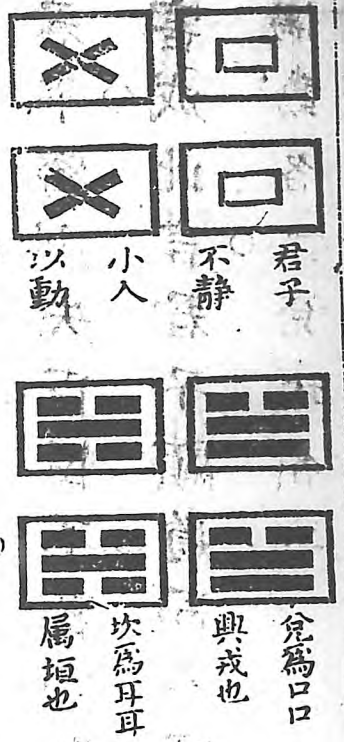 君子
不静
小人
以動
兑爲口口
興戎也
坎爲耳耳
属垣也